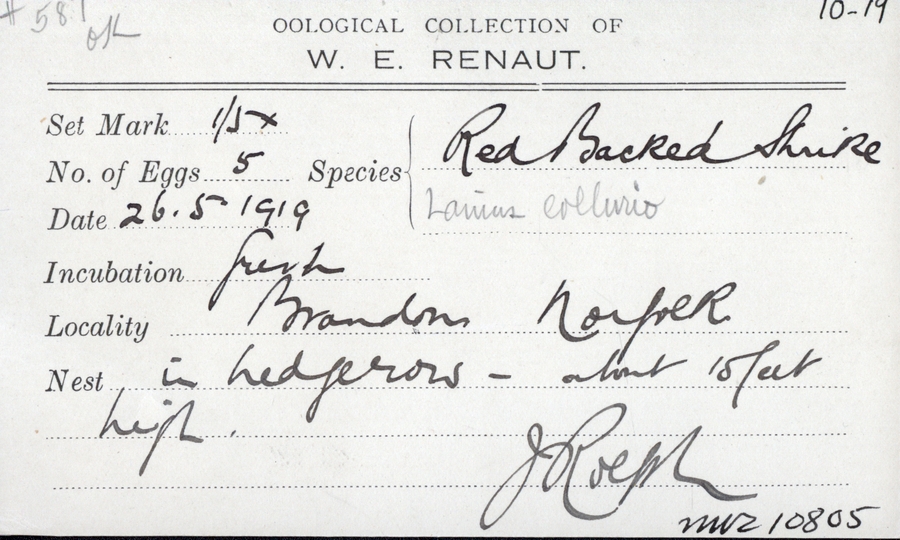 # 581
10-19
OOLOGICAL COLLECTION OF
W. E. RENAUT.
Set Mark 1/5 x
No. of Eggs 5 Species Red Backed Shrike
Date 26.5 1919 Lanius collurio
Incubation fresh
Locality Brandon Norfolk
Nest in hedgerow - about 15 feet
high.
MVZ 10805